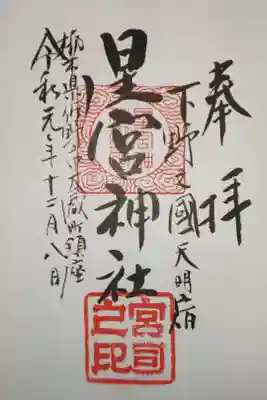 奉拝
下野之國天明宿
星宮神社
栃木県佐野市大蔵町鎮座
令和元年十二月八日
宮司之印